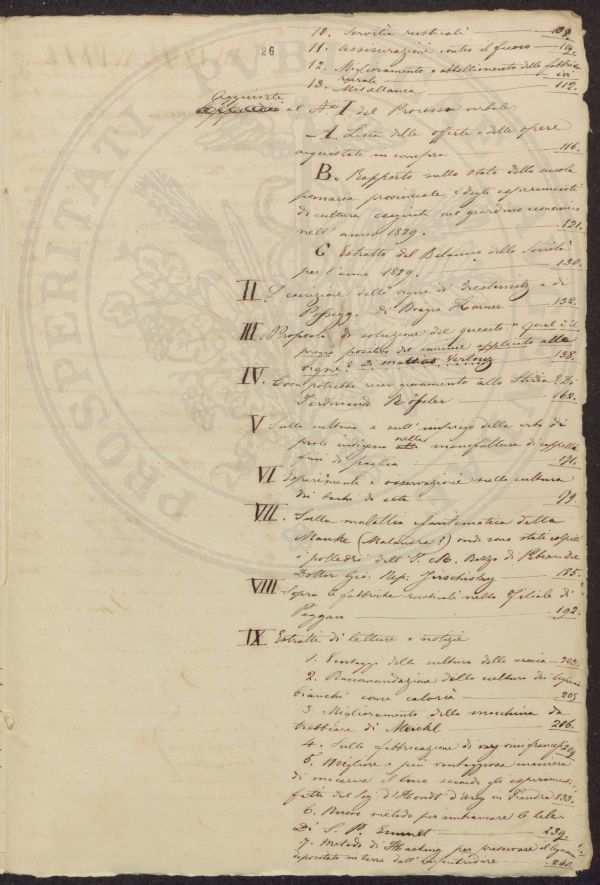 26
10. Servitù rusticali — 108.
11. Assicurazioni contro il fuoco — 119.
12. Miglioramento e abbellimento delle fabbriche
rurale — 111
13. Miscellanea — 112.
Aggiunte al N.º I del Processo verbale.
A. Lista delle offerte e delle opere
acquistate in compra — 116.
B. Rapporto sullo stato della scuola
pomaria provinciale e degli esperimenti
di cultura eseguiti nel giardino economico
nell'anno 1829. — 121.
C Estratto del Bilancio della Società
per l'anno 1829. — 130.
II. Descrizione delle vigne di e di
di Biagio Harner — 132.
III. Proposta di soluzione del quesito "Qual è il
prezzo positivo del concime applicato alle
vigne? Di — 138.
IV. Cosa potrebbe recar giovamento alla Stiria? Di
Ferdinand Rössler — 162.
V Sulla cultura e sull'impiego della erba di
prato indigena nella manifattura di cappelli
fini di paglia — 171.
VI Esperimenti e osservazioni nella cultura
dei bachi da seta — 179
VII. Sulla malattia esantematica detta
Mauke (Malandra!) ond' sono stati colpiti
i polledri dell' I. R. Razza di Piber del
Dottor Gio. Nep. — 185.
VIII Sopra le fabbriche rusticali nella Filiale di
Peggau — 192.
IX Estratti di lettere e notizie
1. Vantaggi della cultura della veccia — 202.
2. Raccomandazione della cultura dei lupini
bianchi come — 205
3. Miglioramento della macchina da
trebbiare di — 206.
4. Sulla fabbricazione di vini francesi 209
5. Migliore e più vantaggiosa maniera
di macerare il lino secondo gli esperimenti
fatti dal Sig. d'Hondt d'Arcy in Fiandra 233.
6. Nuovo metodo per imbiancare le tele
Di S. P. — 239.
7. Metodo di per preservare il legname
depositato in terra dall'imputridire — 240.